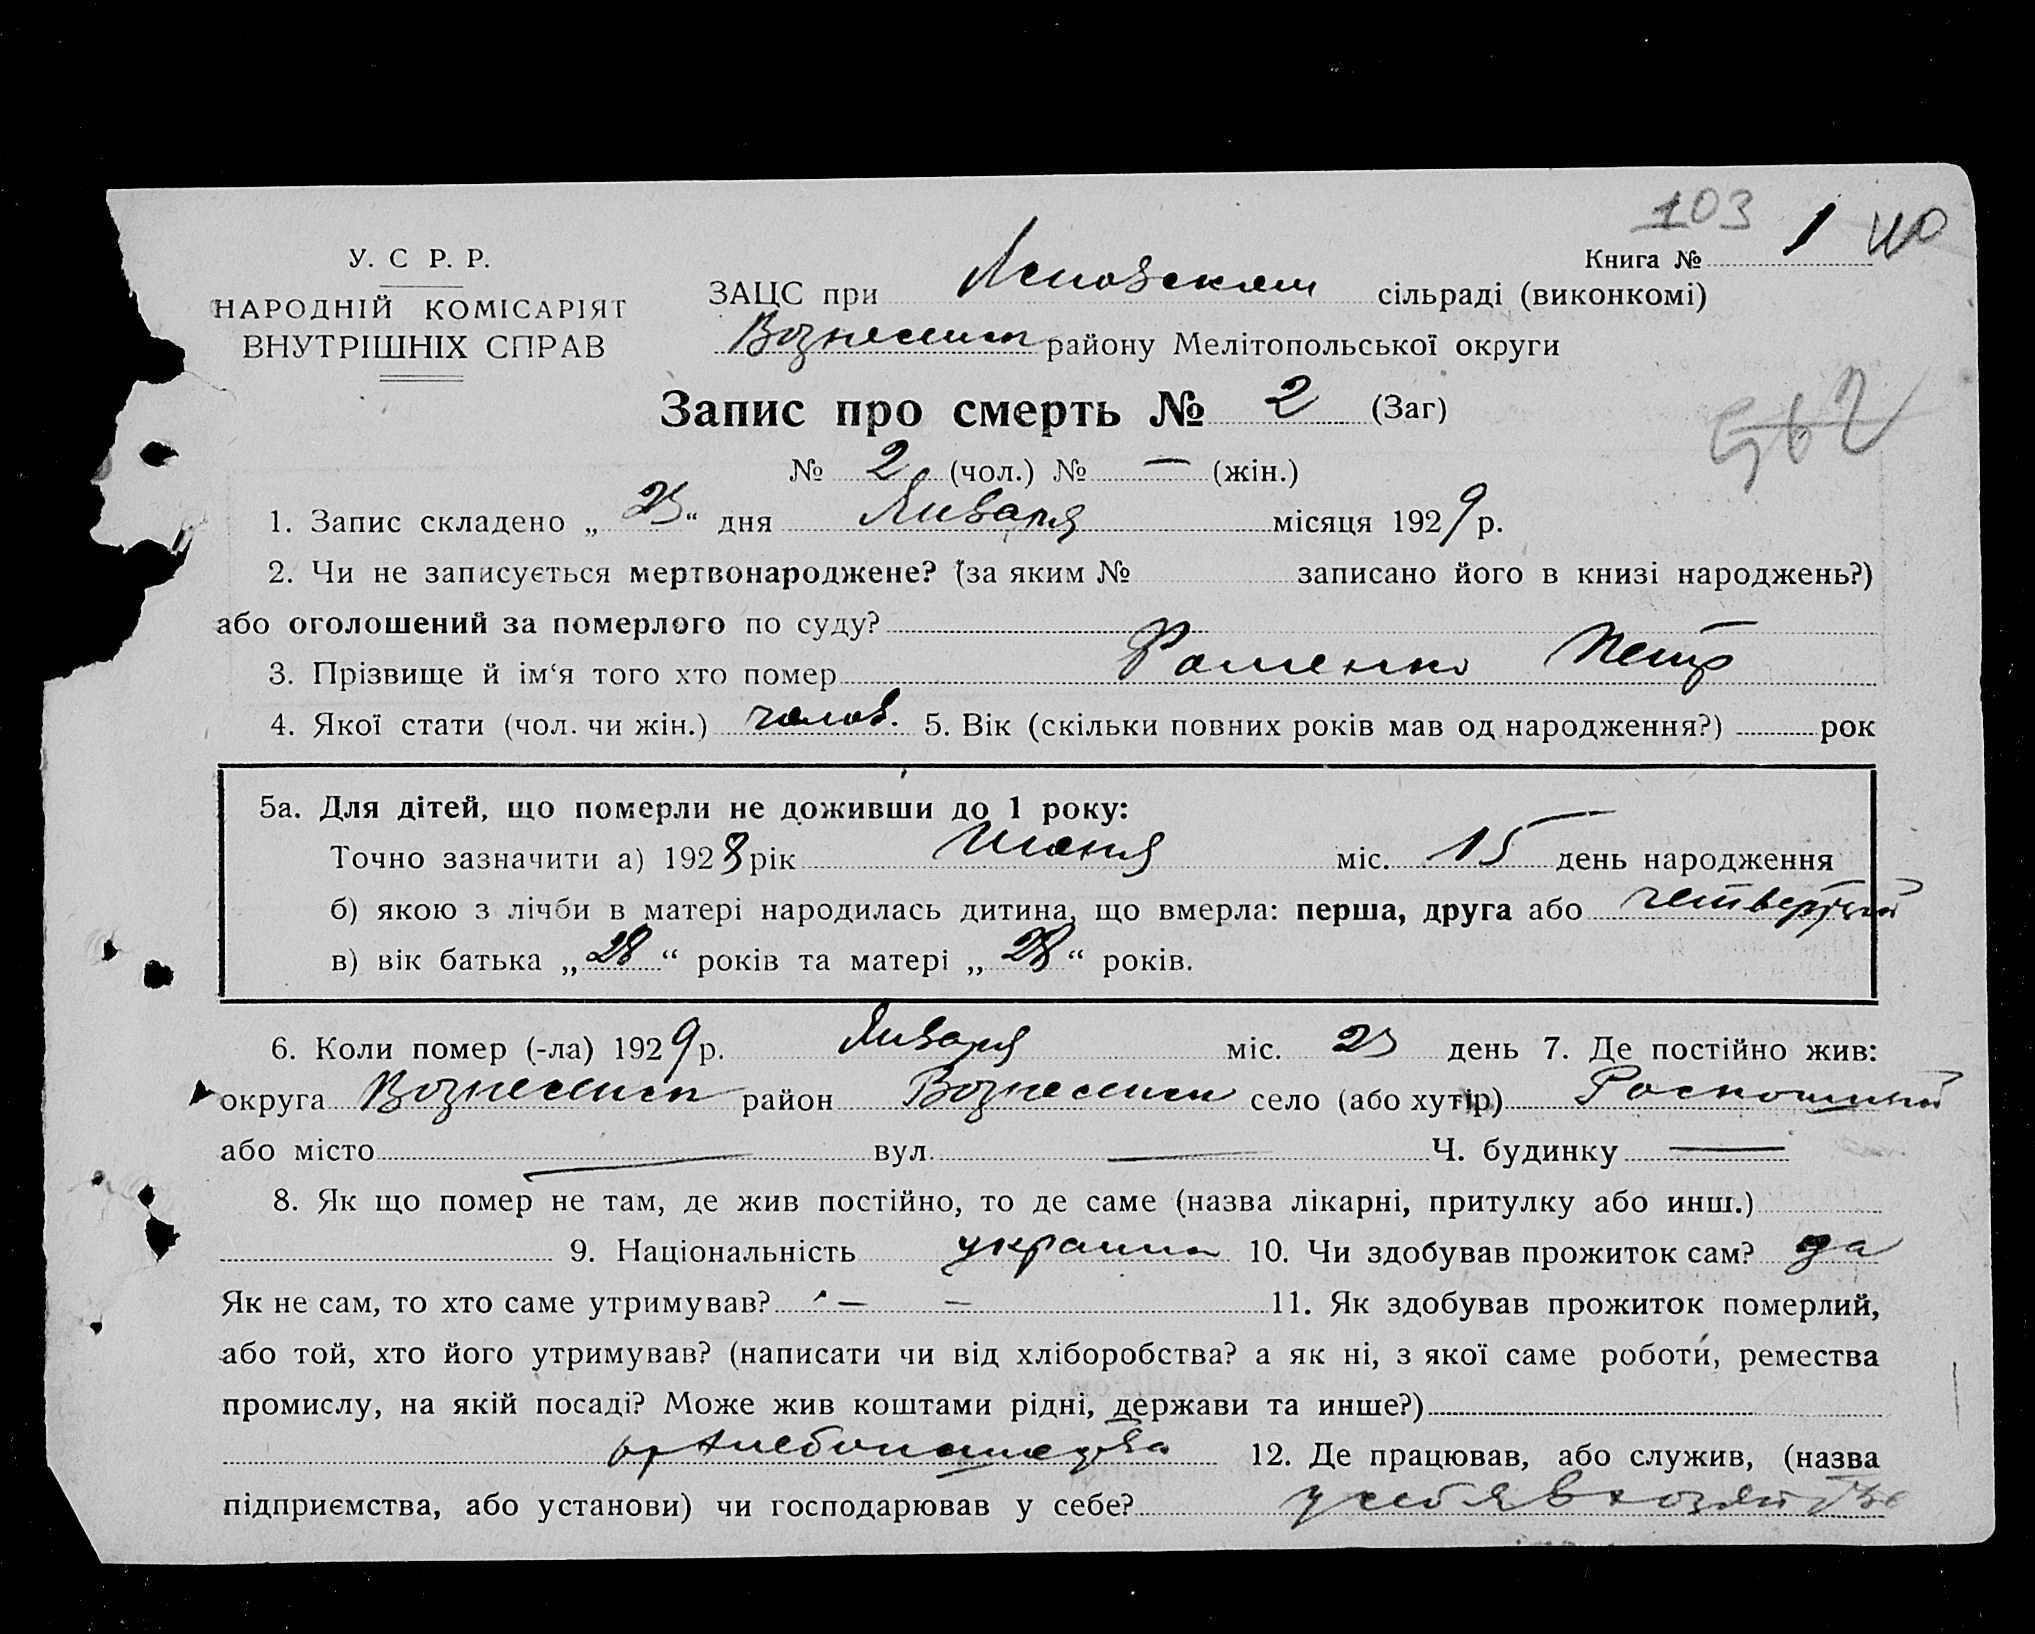 103
Книга № 1
У. С Р. Р.
НАРОДНІЙ КОМІСАРІЯТ
ВНУТРІШНІХ СПРАВ
ЗАЦС при сільраді (виконкомі)
району Мелітопольської округи
Запис про смерть № 2 (Заг)
562
№ 2 (чол.) № — (жін.)
1. Запис складено „23“ дня Января місяця 1929 р.
2. Чи не записується мертвонароджене? (за яким № записано його в книзі народжень?)
або оголошений за померлого по суду?
3. Прізвище й ім‘я того хто помер Фоменко Петр
4. Якої стати (чол. чи жін.) чолов. 5. Вік (скільки повних років мав од народження?) рок
5а. Для дітей, що померли не доживши до 1 року:
Точно зазначити а) 1928 рік Июня міс. 15 день народження
б) якою з лічби в матері народилась дитина, що вмерла: перша, друга або четвертый
в) вік батька „28“ років та матері „28“ років.
6. Коли помер (-ла) 1929 р. Января міс. 23 день 7. Де постійно жив:
округа район село (або хутір)
або місто — вул. — Ч. будинку —
8. Як що помер не там, де жив постійно, то де саме (назва лікарні, притулку або инш.)
9. Національність украин 10. Чи здобував прожиток сам? да
Як не сам, то хто саме утримував? — — 11. Як здобував прожиток померлий,
або той, хто його утримував? (написати чи від хліборобства? а як ні, з якої саме роботи, ремества
промислу, на якій посаді? Може жив коштами рідні, держави та инше?)
12. Де працював, або служив, (назва
підприємства, або установи) чи господарював у себе? у себя в хозяйстве